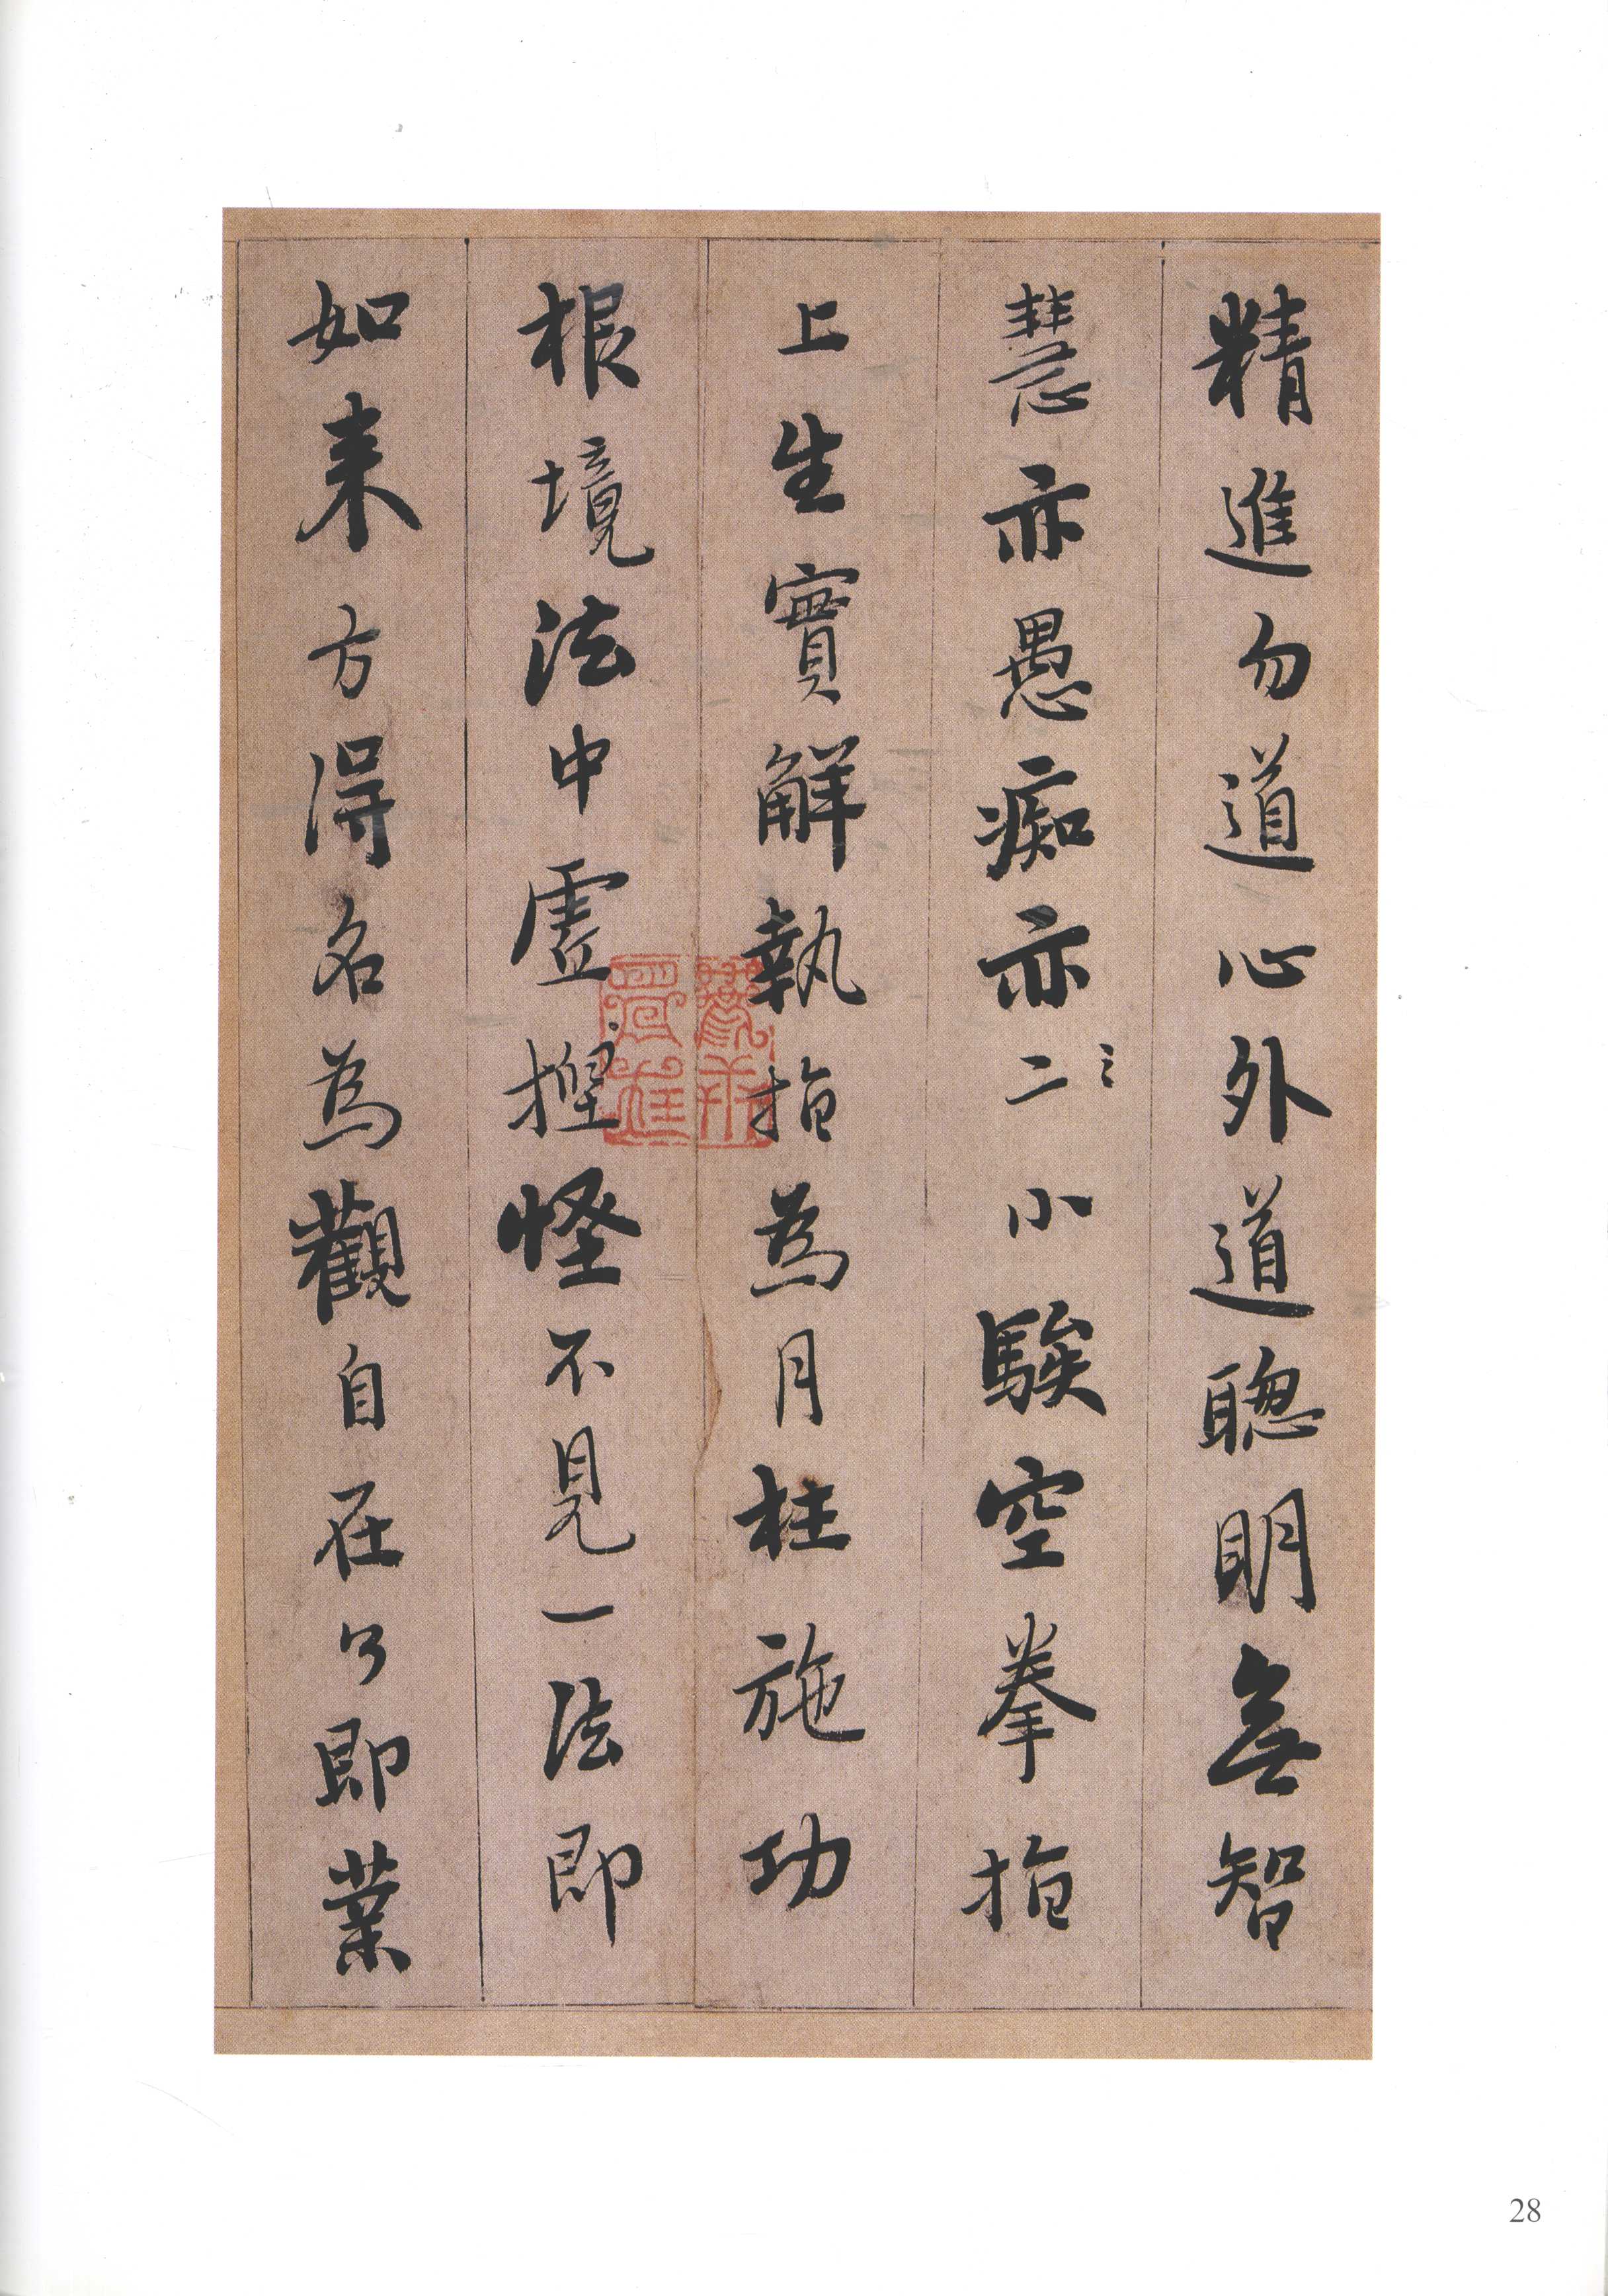 精進勿道心外道聰眀無智
慧亦愚痴亦二小騃空拳指
上生實解執指為月枉施功
根境法中虛捏怪不見一法即
如来方得名為觀自在了即業
28